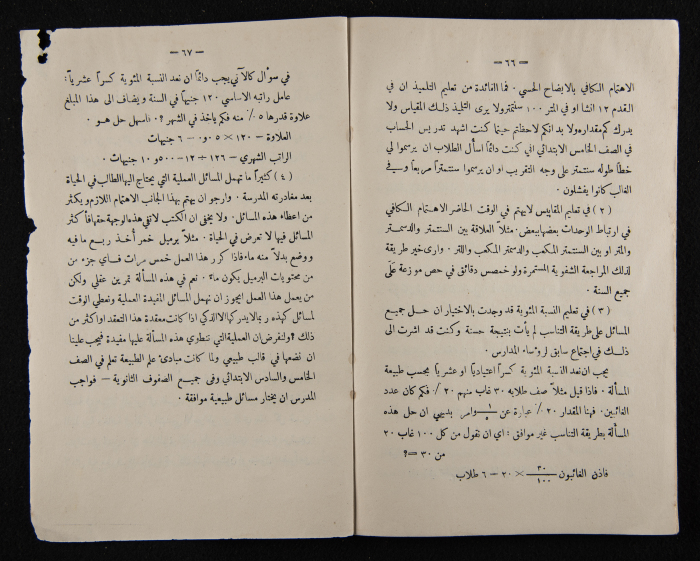 — ٦٦ —
الاهتمام الكافي بالايضاح الحسي . فما الفائدة من تعليم التلميذ ان في
القدم ١٢ انشا او في المتر ١٠٠ سنتمتر ولا يرى التليذ ذلك المقياس ولا
يدرك كم مقداره ولا بد انكم لاحظتم حينما كنت اشهد تدريس الحساب
في الصف الخامس الابتدائي اني كنت دائماً اسأل الطلاب ان يرسموا لي
خطاً طوله سنتمتر على وجه التقريب او ان يرسموا سنتمتراً مربعاً وفي
الغالب كانوا يفشلون .
( ٢ ) في تعليم المقاييس لا يهتم في الوقت الحاضر الاهتمام الكافي
في ارتباط الوحدات بعضها ببعض . مثلاً العلاقة بين السنتمتر والدسمتر
والمتر او بين السنتمتر المكعب والدسمتر المكعب واللتر . وارى خير طريقة
لذلك المراجعة الشفوية المستمرة ولو خمس دقائق في حصص موزعة على
جميع السنة .
( ٣ ) في تعليم النسبة المئوية قد وجدت بالاختبار ان حل جميع
المسائل على طريقة التناسب لم يأت بنتيجة حسنة وكنت قد اشرت الى
ذلك في اجتماع سابق لرؤساء المدارس .
يجب ان نعد النسبة المئوية كسراً اعتيادياً او عشرياً بحسب طبيعة
المسألة . فاذا قيل مثلاً صف طلابه ٣٠ غاب منهم ٢٠ ٪ فكم كان عدد
الغائبين . فهنا المقدار ٢٠ ٪ عبارة عن ١/٥ وامر بديهي ان حل هذه
المسألة بطريقة التناسب غير موافق : اي ان نقول من كل ١٠٠ غاب ٢٠
من ٣٠ = ؟
فاذن الغائبون ٢٠/١٠٠ × ٣٠ = ٦ طلاب
— ٦٧ —
في سؤال كالآتي يجب دائماً ان نعد النسبة المئوية كسراً عشرياً :
عامل راتبه الاساسي ١٢٠ جنيهاً في السنة ويضاف الى هذا المبلغ
علاوة قدرها ٥ ٪ منه فكم ياخذ في الشهر ؟ . اسهل حل هو .
العلاوة = ١٢٠ × ٠٥و٠ = ٦ جنيهات
الراتب الشهري = ١٢٦ ÷ ١٢ = ٥٠٠و١٠ جنيهات .
( ٤ ) كثيراً ما تهمل المسائل العملية التي يحتاج اليها الطالب في الحياة
بعد مغادرته المدرسة . وارجو ان يهتم بهذا الجانب الاهتمام اللازم ويكثر
من اعطاء هذه المسائل . ولا يخفى ان الكتب لا تفي هذه الوجهة حقها فأكثر
المسائل فيها لا تعرض في الحياة . مثلاً برميل خمر أُخذ ربع ما فيه
ووضع بدلاً منه ماء فاذا كرر هذا العمل خمس مرات فساي جزء من
من محتويات البرميل يكون ماء . نعم في هذه المسألة تمرين عقلي ولكن
من يعمل هذا العمل ايجوز ان نهمل المسائل المفيدة العملية ونعطي الوقت
لمسائل كهذه ربما لا يدركها الا الذكي اذا كانت معقدة هذا التعقد او اكثر من
ذلك ؟ ولنفرض ان العملية التي تنطوي هذه المسألة عليها مفيدة فيجب علينا
ان نضعها في قالب طبيعي ولما كانت مبادئ علم الطبيعة تعلم في الصف
الخامس والسادس الابتدائي وفي جميع الصفوف الثانوية — فواجب
المدرس ان يختار مسائل طبيعية موافقة .